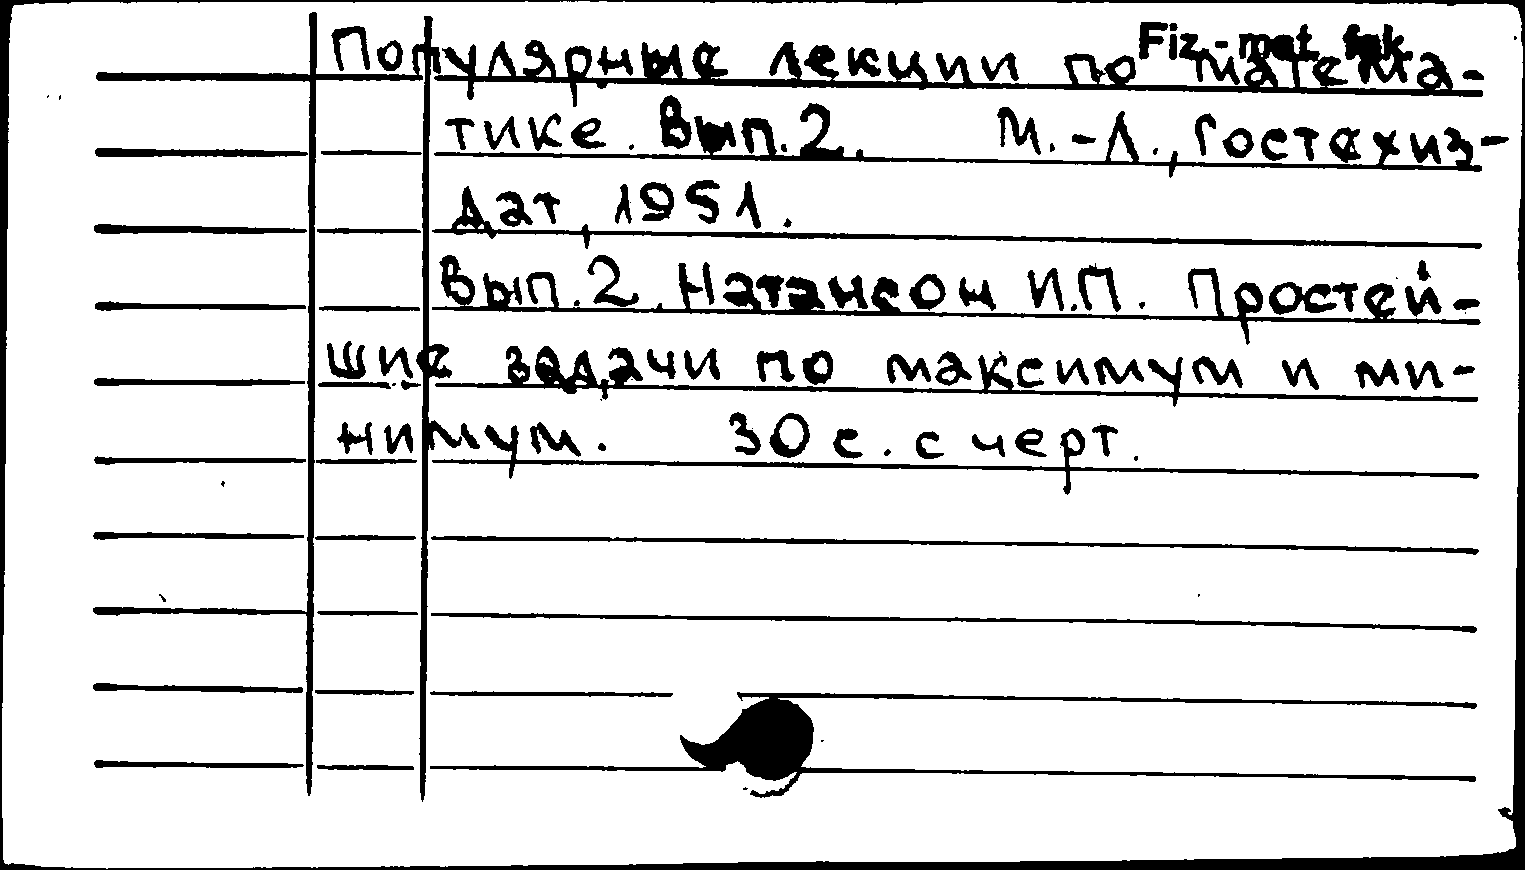 Fiz.-mat. fak.
Популярные лекции по матема-
тике. Вып.2. М.-Л., Гостехиз-
дат, 1951.
Вып.2. Натансон И.П. Простей-
шие задачи по максимум и ми-
нимум. 30 с. с черт.